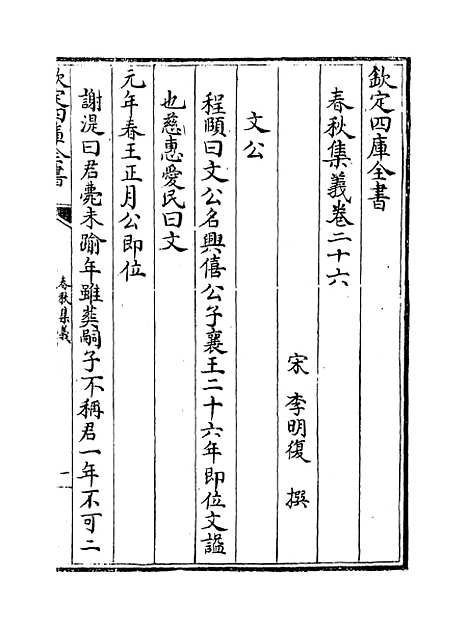 欽定四庫全書
春秋集義卷二十六
宋 李明復 撰
文公
程頤曰文公名興僖公子襄王二十六年即位文謚
也慈惠愛民曰文
元年春王正月公即位
謝湜曰君薨未踰年雖葬嗣子不稱君一年不可二
欽定四庫全書
春秋集義
一